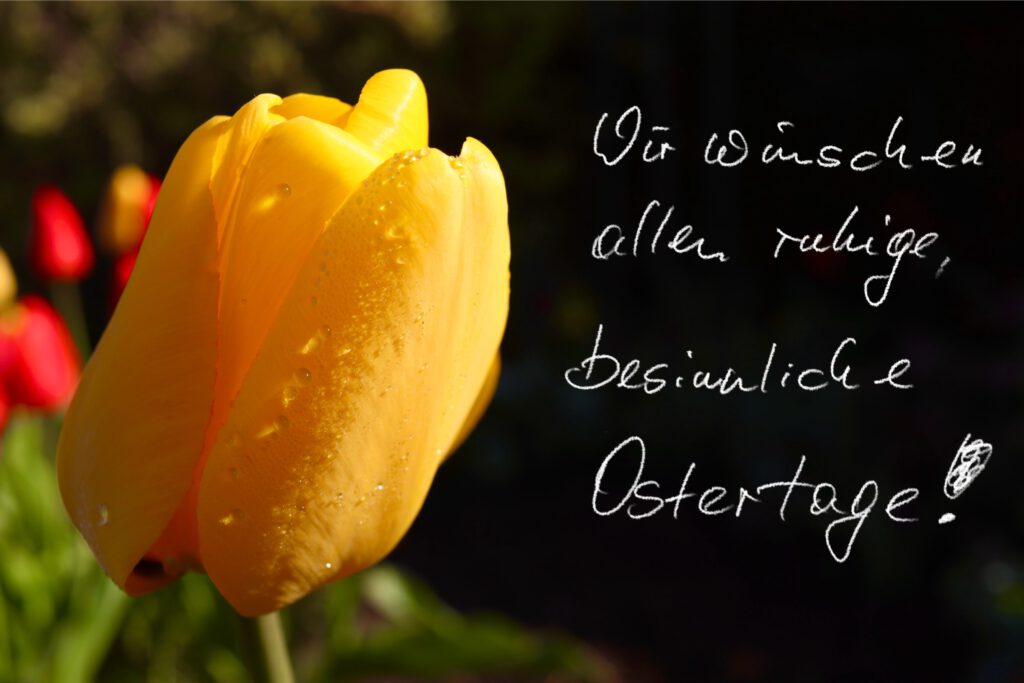 Wir wünschen
allen ruhige,
besinnliche
Ostertage!